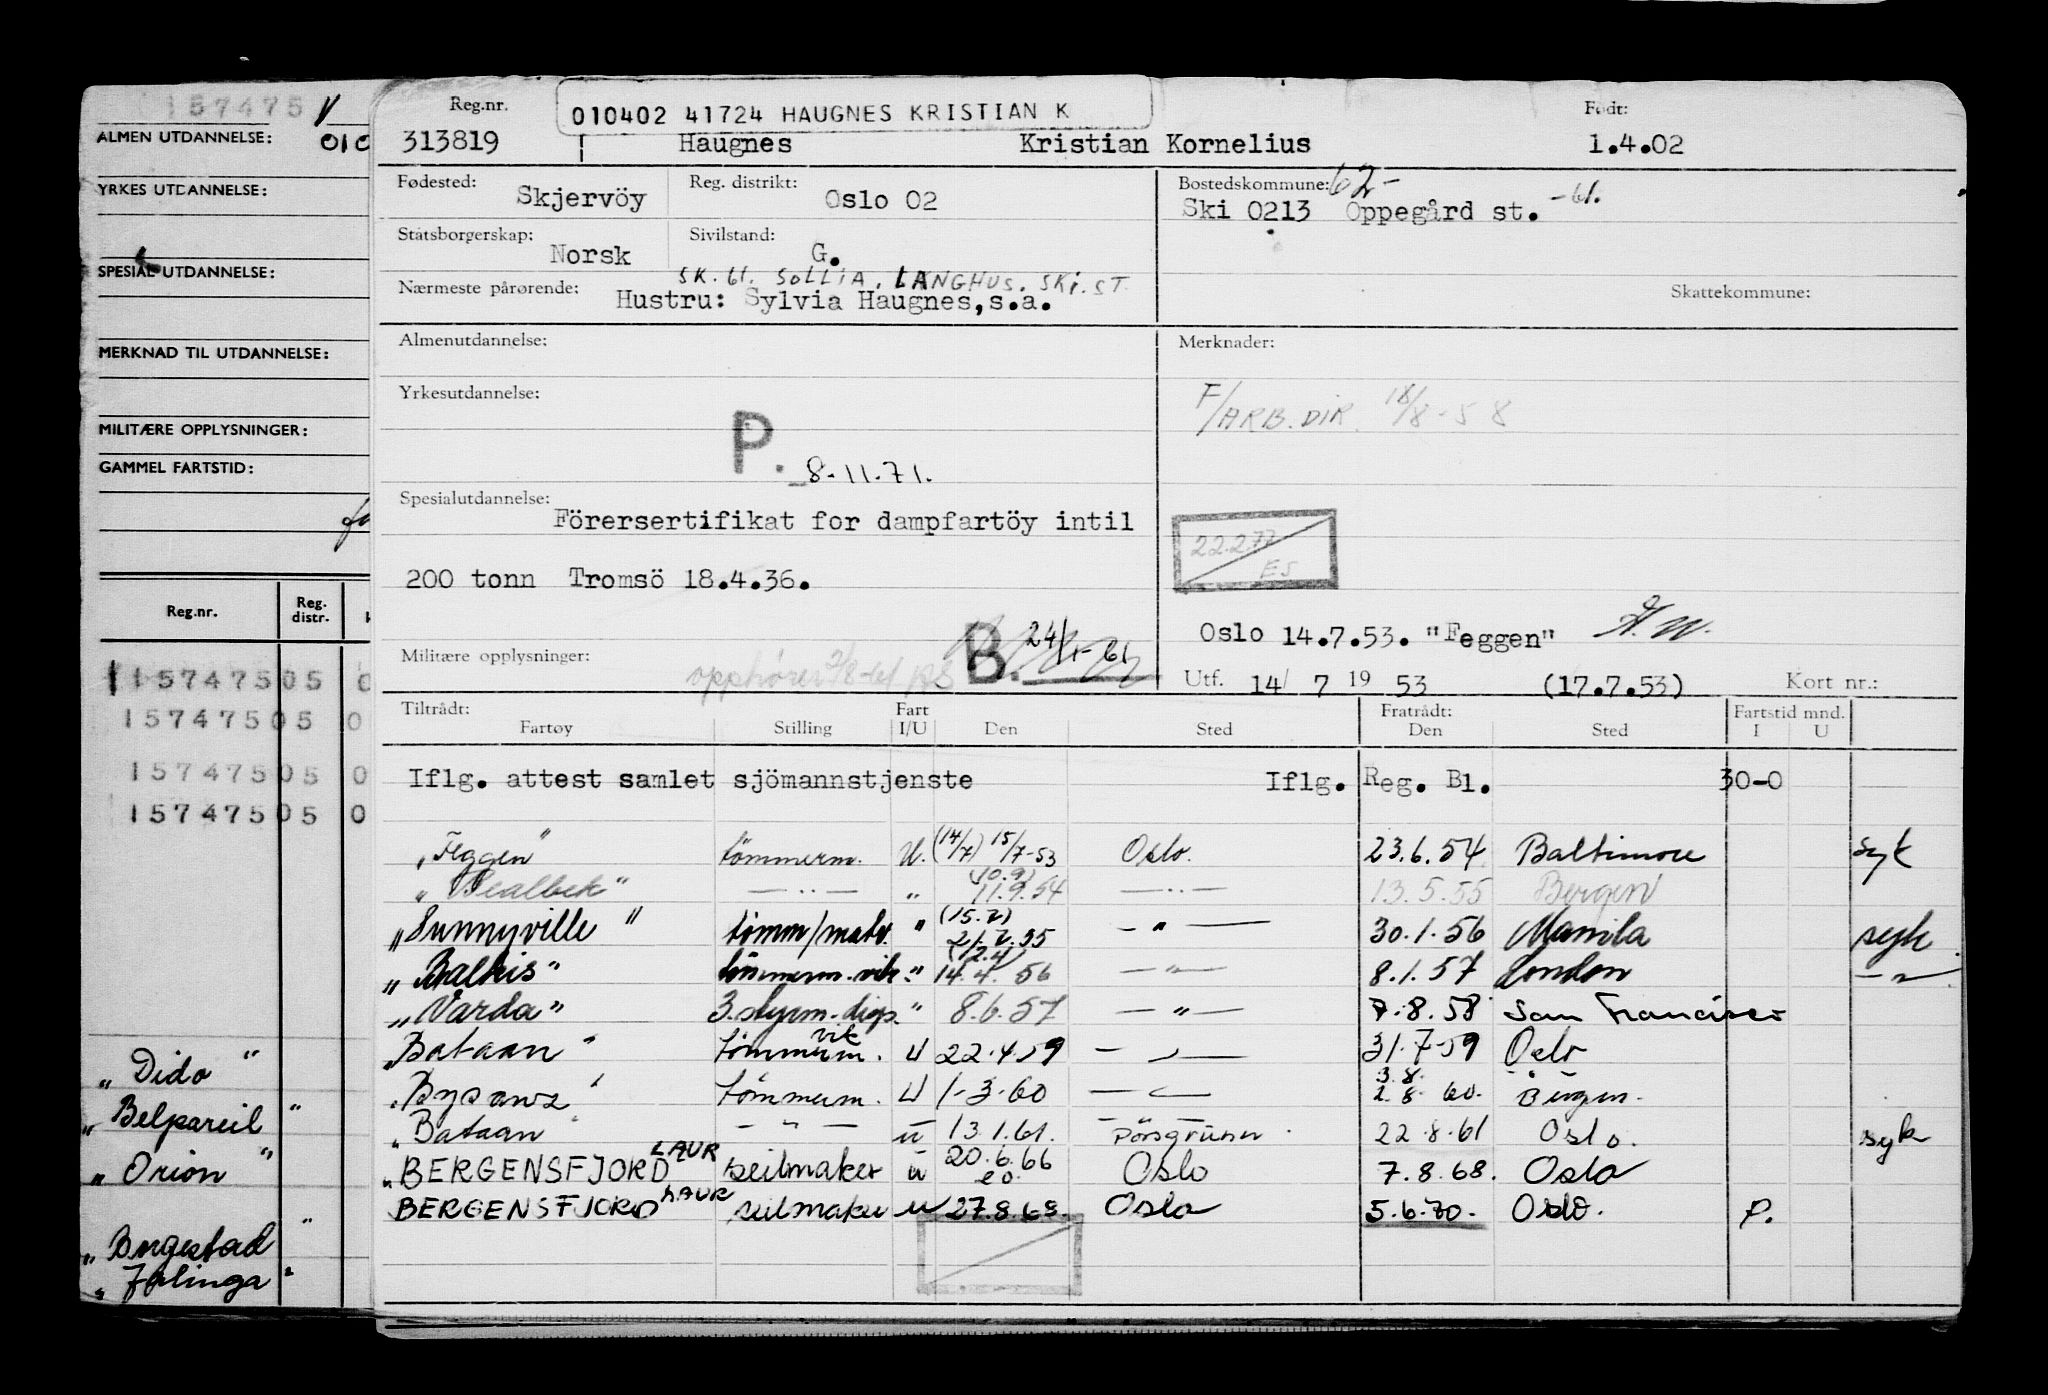 157475
ALMEN UTDANNELSE:
YRKES UTDANNELSE:
SPESIAL UTDANNELSE:
MERKNAD TIL UTDANNELSE:
MILITÆRE OPPLYSNINGER:
GAMMEL FARTSTID:
Reg.nr. Reg. distr.
157475 05 0
157475 05 0
157475 05 0
157475 05 0
"Dido"
"Belpareil"
"Orion"
"Borgestad"
"Jalinga"
Reg.nr. 010402 41724 HAUGNES KRISTIAN K Født:
313819 Haugnes Kristian Kornelius 1.4.02
Fødested: Skjervöy Reg. distrikt: Oslo 02 Bostedskommune: 62-
Ski 0213 Oppegård st. -61.
Statsborgerskap: Norsk Sivilstand: G.
SK. 61. SOLLIA. LANGHUS. SKI. ST.
Nærmeste pårørende: Hustru: Sylvia Haugnes,s.a. Skattekommune:
Almenutdannelse: Merknader:
Yrkesutdannelse: F/ARB.DIR. 18/8-58
P. 8.11.71.
Spesialutdannelse: Förersertifikat for dampfartöy intil
22.2.72 ES
200 tonn Tromsö 18.4.36.
Oslo 14.7.53. "Feggen"
Militære opplysninger: B. 24/1-61
Utf. 14/ 7 19 53 (17.7.53) Kort nr.:
Tiltrådt: Fart Fratrådt: Fartstid mnd.
Fartøy Stilling I/U Den Sted Den Sted I U
Iflg. attest samlet sjömannstjenste Iflg. Reg. Bl. 30-0
"Feggen" tömmerm. U. (14/7) 15/7-53 Oslo. 23.6.54 Baltimore syk
— " — " (10.9) 11.9.54 — " — 13.5.55 Bergen
"Sunnyville" tömm/matr. " (15.7) 21.7.55 — " — 30.1.56 Manila syk
"Balkis" tömmerm. vik. " (12.4) 14.4.56 — " — 8.1.57 London — " —
"Varda" 3.styrm. disp. " 8.6.57 — " — 7.8.58 San Francisco
"Bataan" tömmerm. vik U 22.4.59 — " — 31.7.59 Oslo
"Bysanz" tömmerm. U 1-3-60 — " — 3.8. 2.8.60. Bergen.
"Bataan" — " — U 13.1.61. Porsgrunn. 22.8.61 Oslo. syk
"BERGENSFJORD LAUR seilmaker U 20.6.66 Oslo 7.8.68. Oslo
BERGENSFJORD LAUR seilmaker U 27.8.68. Oslo 5.6.70. Oslo. P.